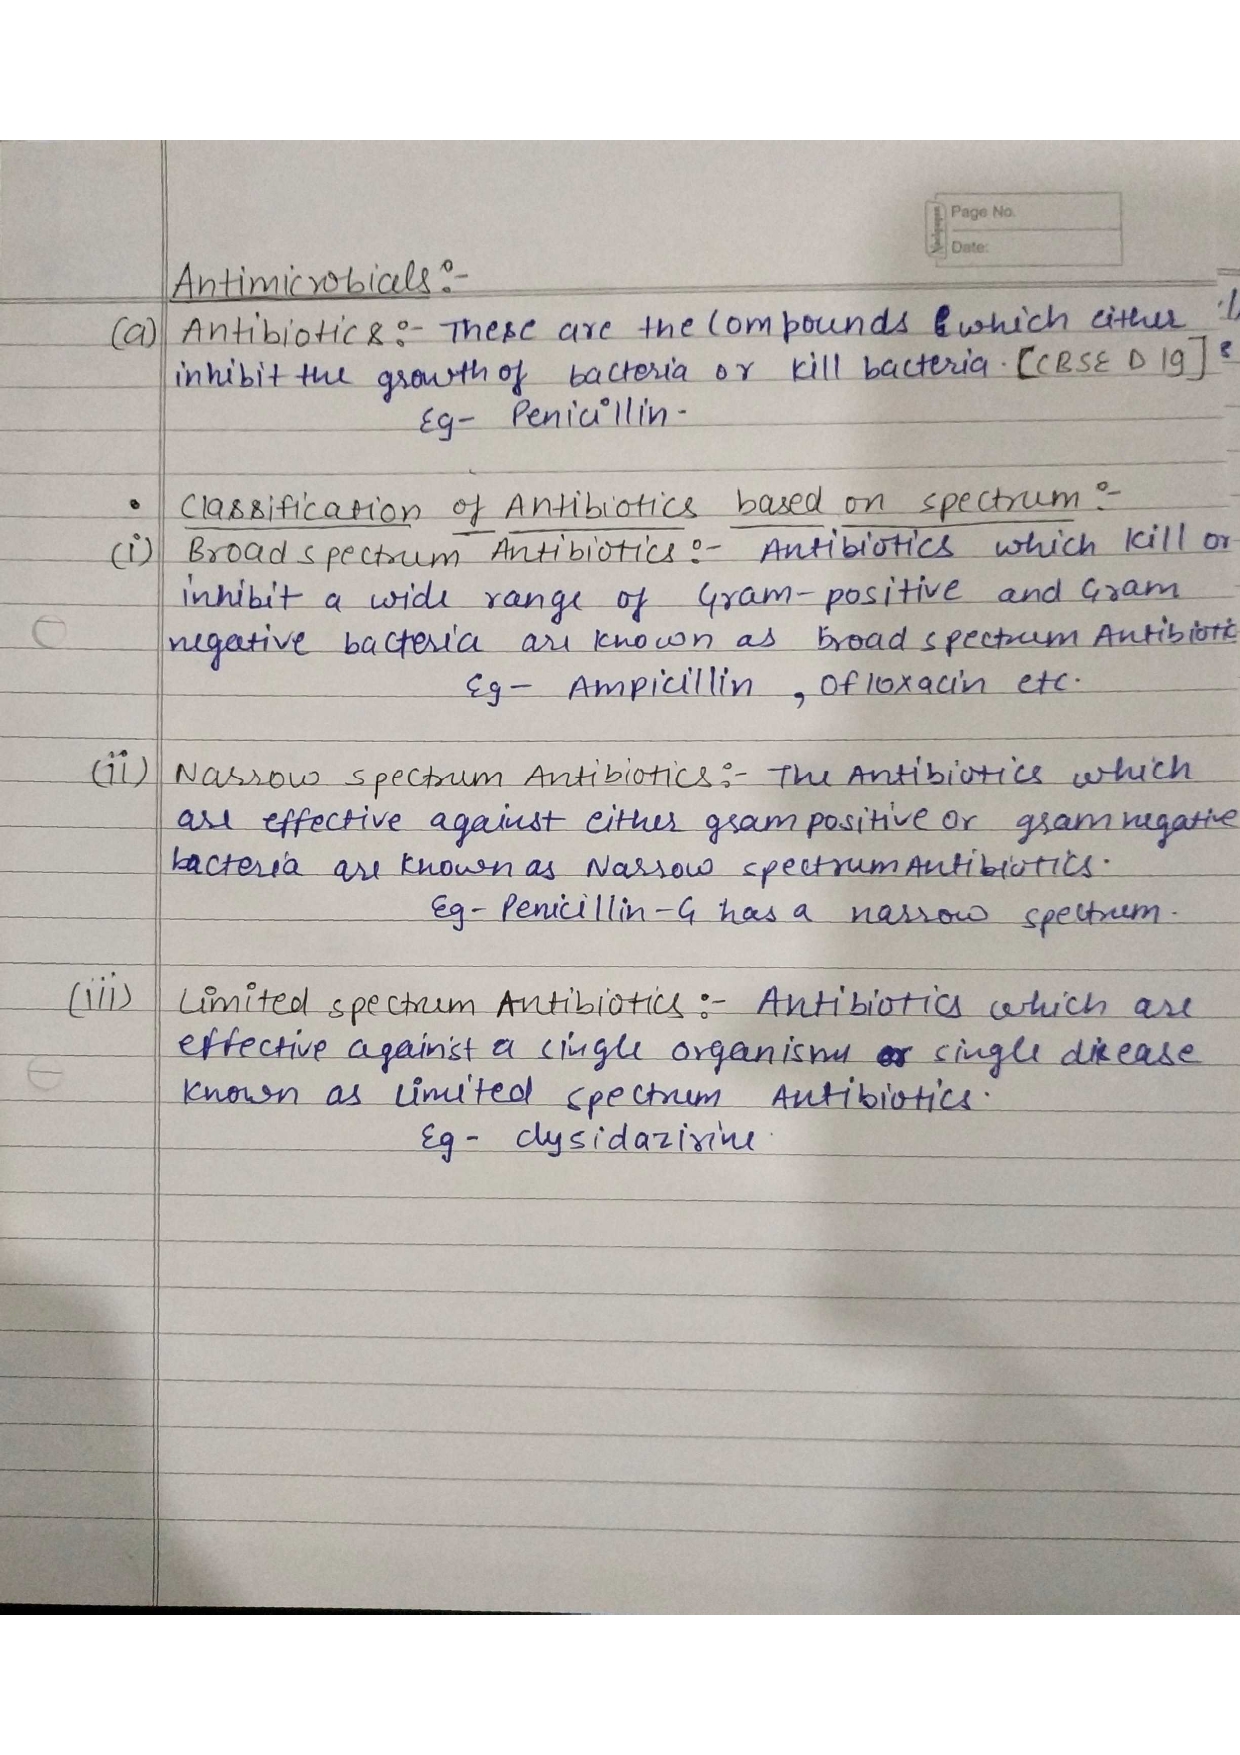 Page No.
Date:
Antimicrobials :-
(a) Antibiotics :- These are the compounds which either
inhibit the growth of bacteria or kill bacteria. [CBSE D 19]
Eg- Penicillin.
• Classification of Antibiotics based on spectrum :-
(i) Broad spectrum Antibiotics :- Antibiotics which kill or
inhibit a wide range of Gram-positive and Gram
negative bacteria are known as Broad spectrum Antibiotic
Eg- Ampicillin, Ofloxacin etc.
(ii) Narrow spectrum Antibiotics :- The Antibiotics which
are effective against either gram positive or gram negative
bacteria are known as Narrow spectrum Antibiotics.
Eg- Penicillin-G has a narrow spectrum.
(iii) Limited spectrum Antibiotics :- Antibiotics which are
effective against a single organism or single disease
known as limited spectrum Antibiotics.
Eg- dysidazirine.